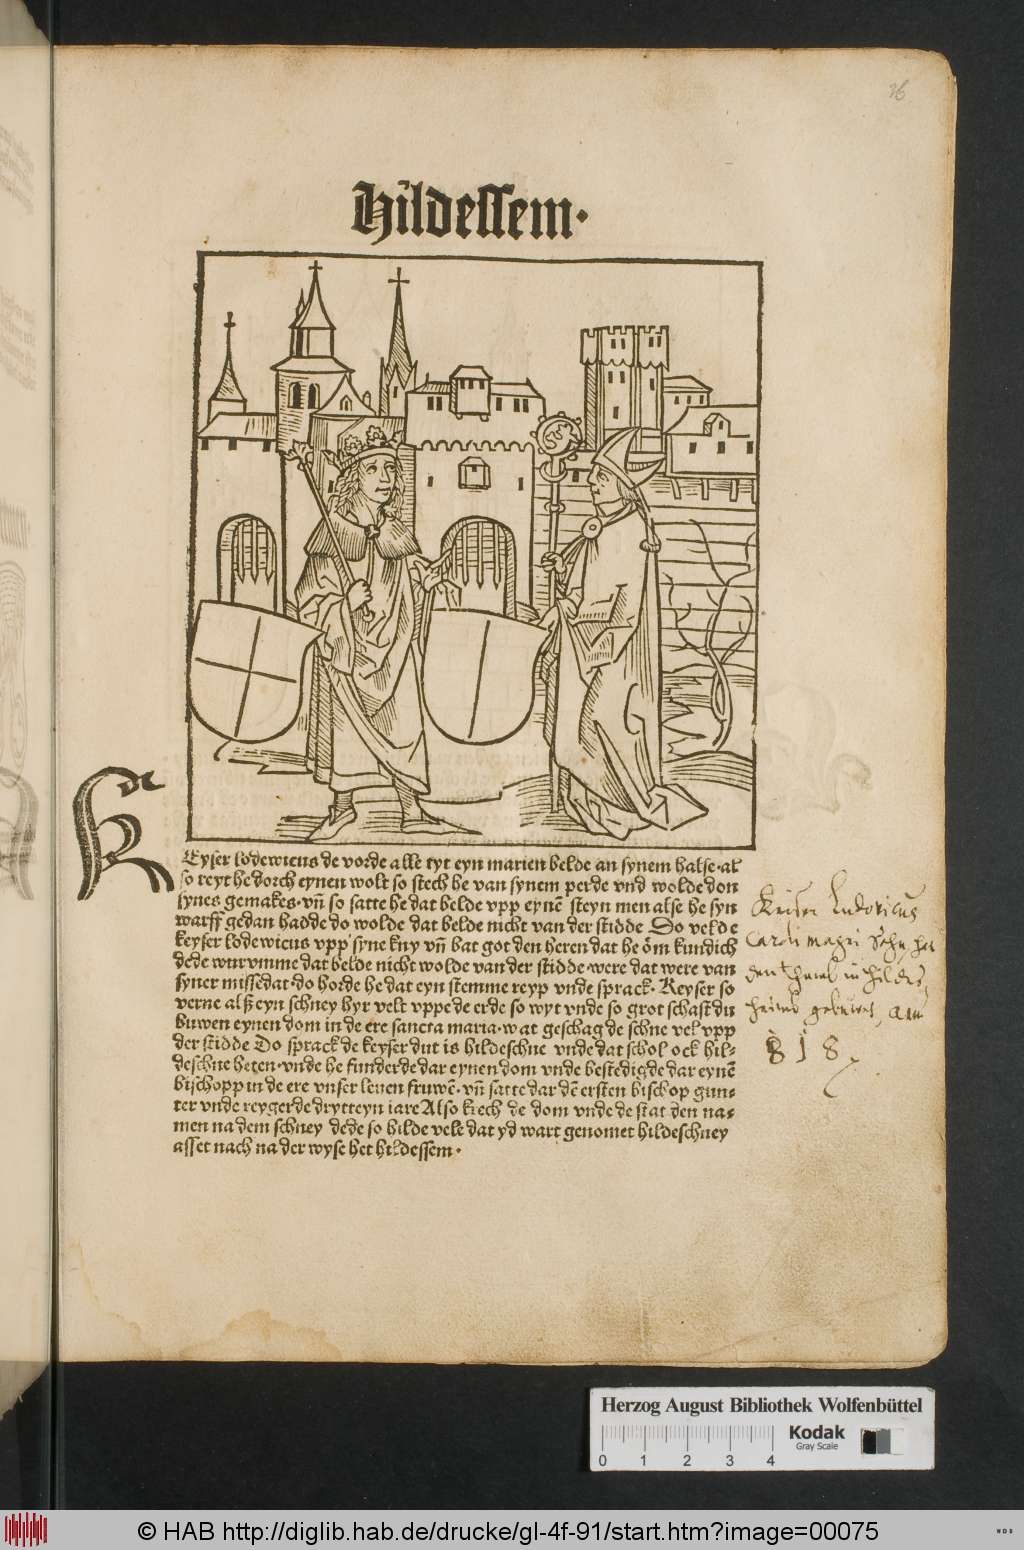 26
Hildessem.
KEyser lodewicus de vorde alle tyt eyn marien belde an synem halse·al
so reyt he dorch eynen wolt so stech he van synem perde vnd wolde don
synes gemakes·vñ so satte he dat belde vpp eynē steyn men alse he syn
warff gedan hadde do wolde dat belde nicht van der stidde Do velde
keyser lodewicus vpp syne kny vñ bat got den heren dat he öm kundich
dede wurvmme dat belde nicht wolde van der stidde·were dat were van
syner missedat·do horde he dat eyn stemme reyp vnde sprack·Keyser so
verne alß eyn schney hyr velt vppe de erde so wyt vnde so grot schastdu
buwen eynen dom in de ere sancta maria·wat geschag de schne vel vpp
der stidde Do sprack de keyser dut is hildeschne vnde dat schol ock hil-
deschne heten·vnde he funderde dar eynen dom vnde bestedigde dar eynē
bischopp in de ere vnser leuen fruwē·vñ satte dar dē ersten bischop gun-
ter vnde reygerde drytteyn iare Also krech de dom vnde de stat den na-
men na dem schney dede so hilde vele dat yd wart genomet hildeschney
asset nach na der wyse het hildessem·
Keiser Ludovicus
Caroli magni Sohn, hat
den thumb in Hildes-
heimb gebuwet, Am
818.
Herzog August Bibliothek Wolfenbüttel
Kodak
Gray Scale
0 1 2 3 4
© HAB http://diglib.hab.de/drucke/gl-4f-91/start.htm?image=00075